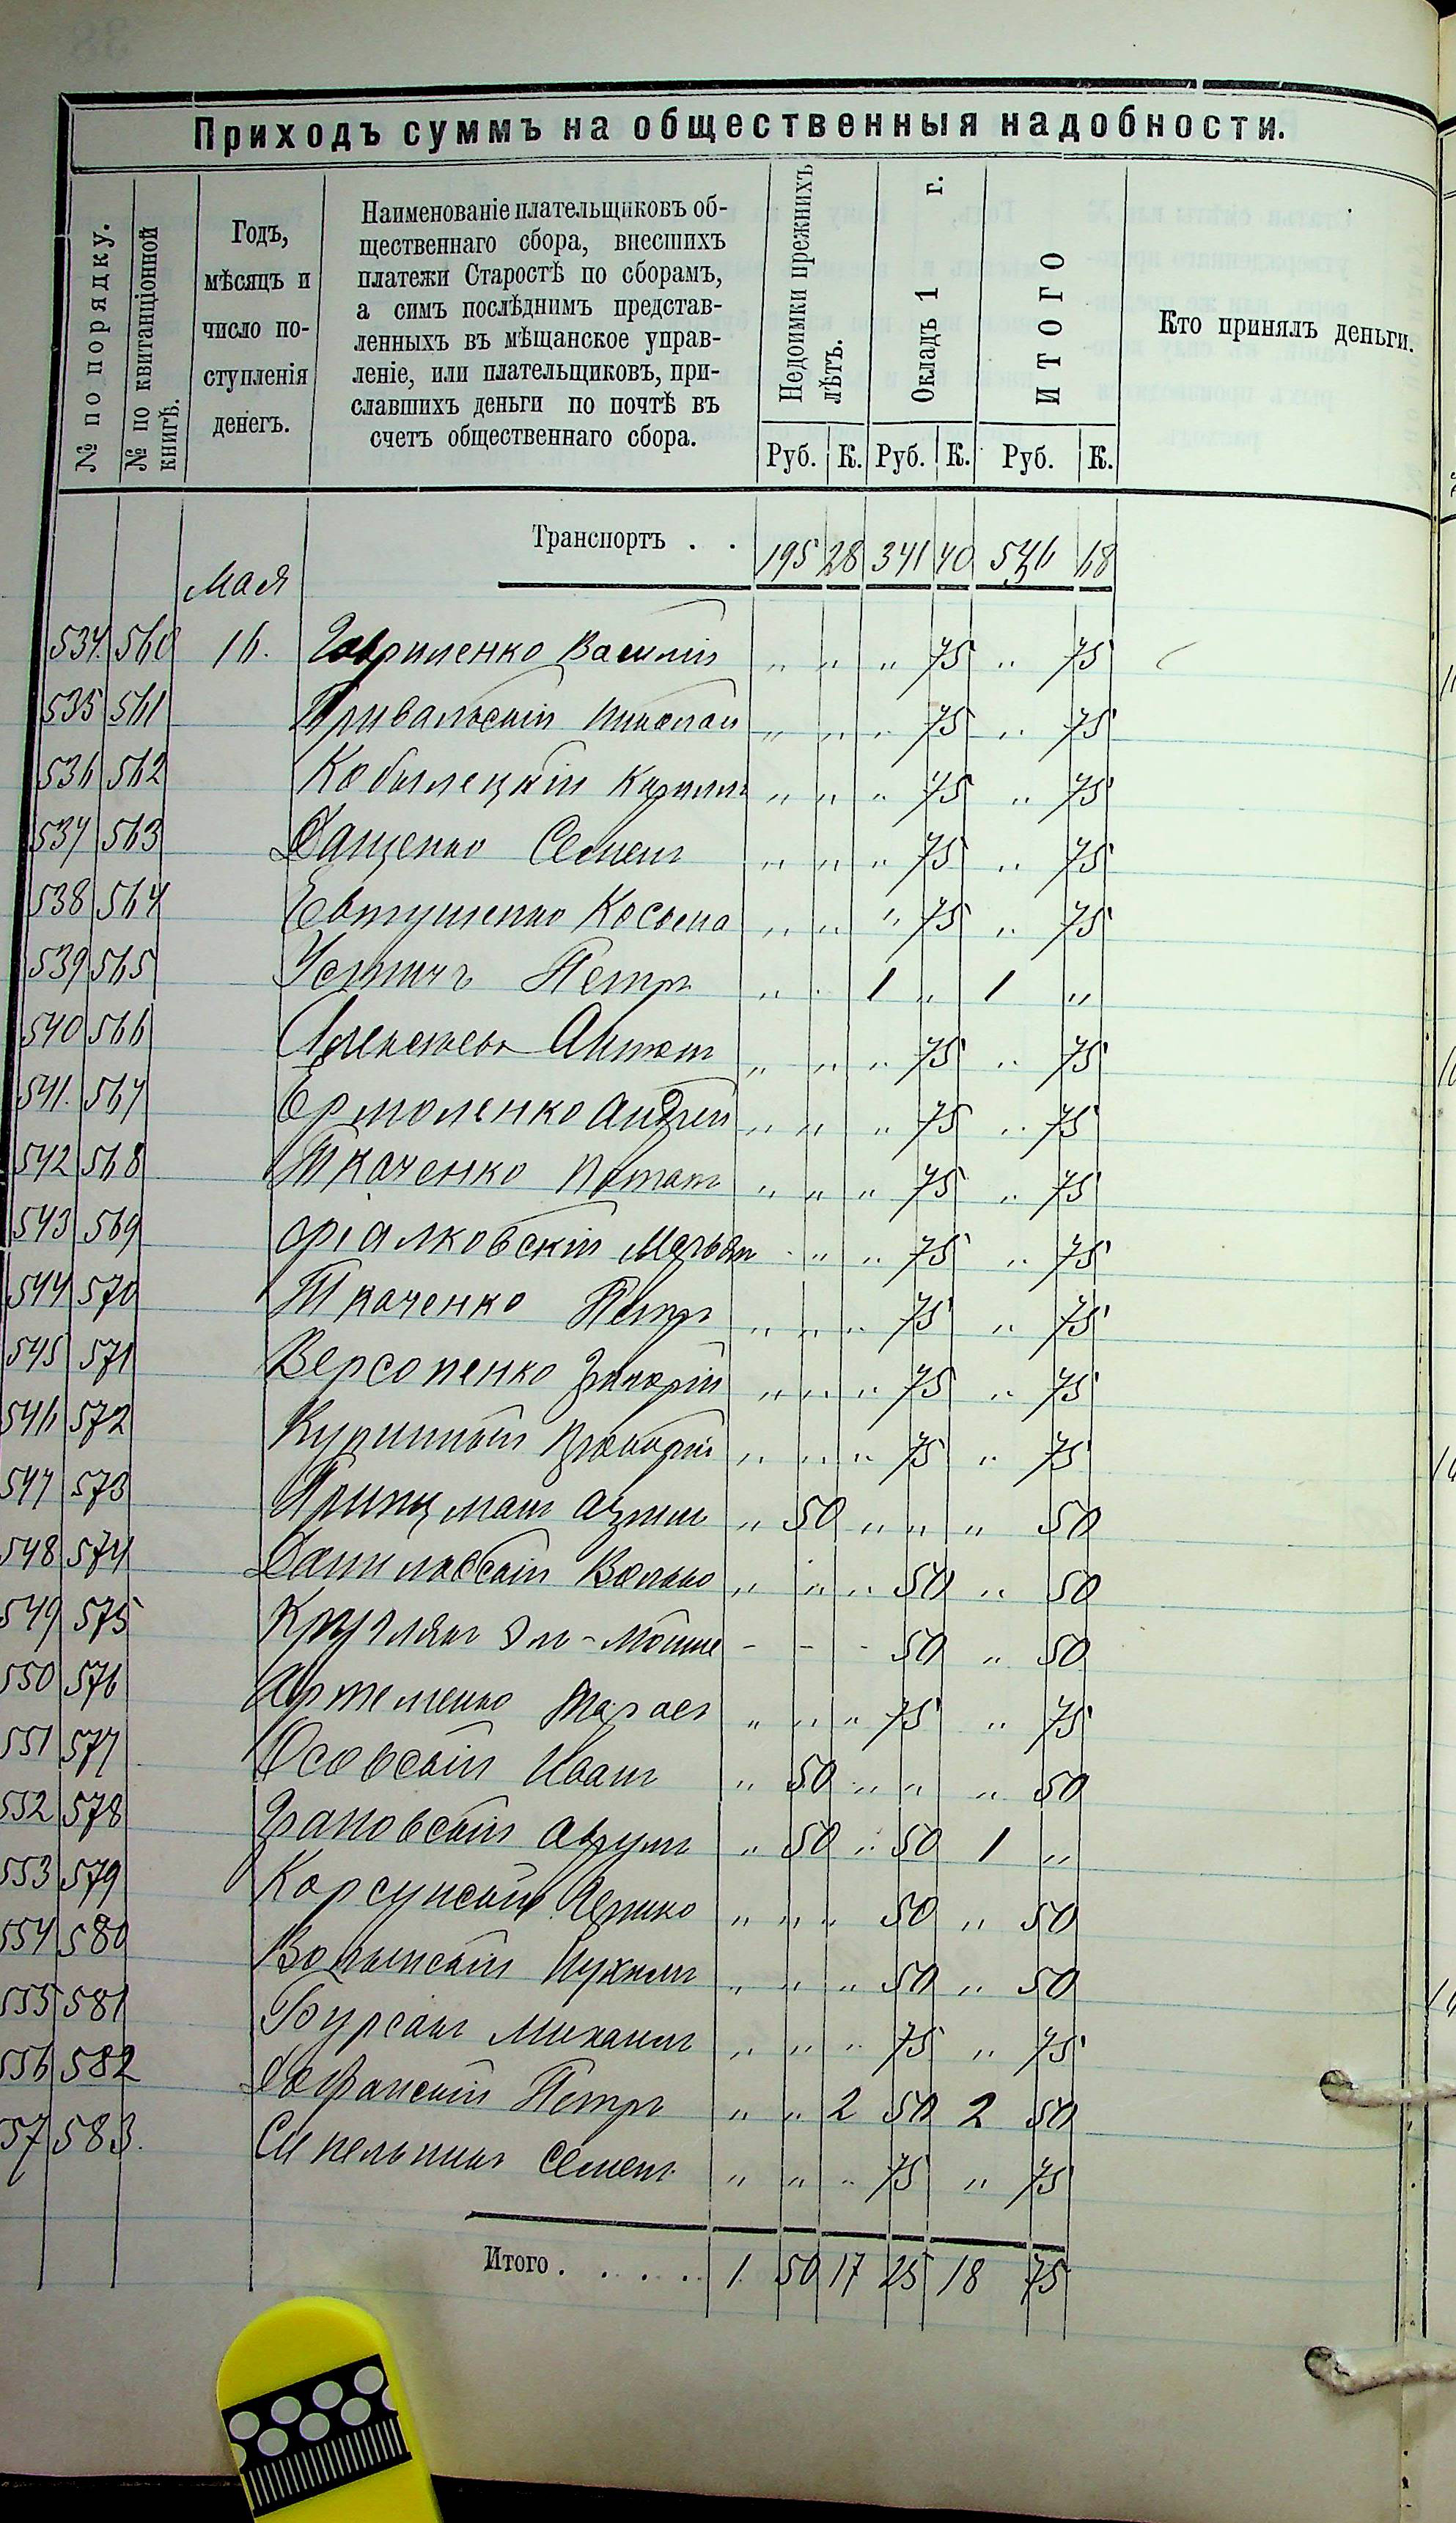 Приходъ суммъ на общественныя надобности.
№ по порядку.
№ по квитанціонной книгѣ.
Годъ, мѣсяцъ и число поступленія денегъ.
Наименованіе плательщиковъ об-
щественнаго сбора, внесшихъ
платежи Старостѣ по сборамъ,
а симъ послѣднимъ представ-
ленныхъ въ мѣщанское управ-
леніе, или плательщиковъ, при-
славшихъ деньги по почтѣ въ
счетъ общественнаго сбора.
Недоимки прежнихъ лѣтъ.
Окладъ 1 г.
ИТОГО
Кто принялъ деньги.
Руб. К. Руб. К. Руб. К.
Транспортъ . . 195 28 341 40 536 68
Мая
534. 560 16. Гавриленко Василій " " " 75 " 75
535 561 Привальскій Николай " " " 75 " 75
536 562 Кобылецкій Кириллъ " " " 75 " 75
537 563 Даценко Семенъ " " " 75 " 75
538 564 Евтушенко Косьма " " " 75 " 75
539 565 Устичъ Петръ " " 1 " 1 "
540 566 Алексѣевъ Антонъ " " " 75 " 75
541. 567 Ермоленко Андрей " " " 75 " 75
542 568 Ткаченко Потапъ " " " 75 " 75
543 569 Фіалковскій Марьян " " " 75 " 75
544 570 Ткаченко Петръ " " " 75 " 75
545 571 Версопенко " " " 75 " 75
546 572 Прокофій " " " 75 " 75
547 573 Принцманъ " 50 " " " 50
548 574 Даниловскій Волько " " " 50 " 50
549 575 Круглякъ Эль-Мошке - - - 50 " 50
550 576 Артеменко Тарасъ " " " 75 " 75
551 577 Осовскій Иванъ " 50 " " " 50
552 578 Грановскій Аврумъ " 50 " 50 1 "
553 579 Корсунскій " " " 50 " 50
554 580 Волынскій " " " 50 " 50
555 581 Бурсакъ Михаилъ " " " 75 " 75
556 582 Петръ " " 2 50 2 50
57 583. Синельникъ Семенъ " " " 75 " 75
Итого . . . . . 1. 50 17 25 18 75